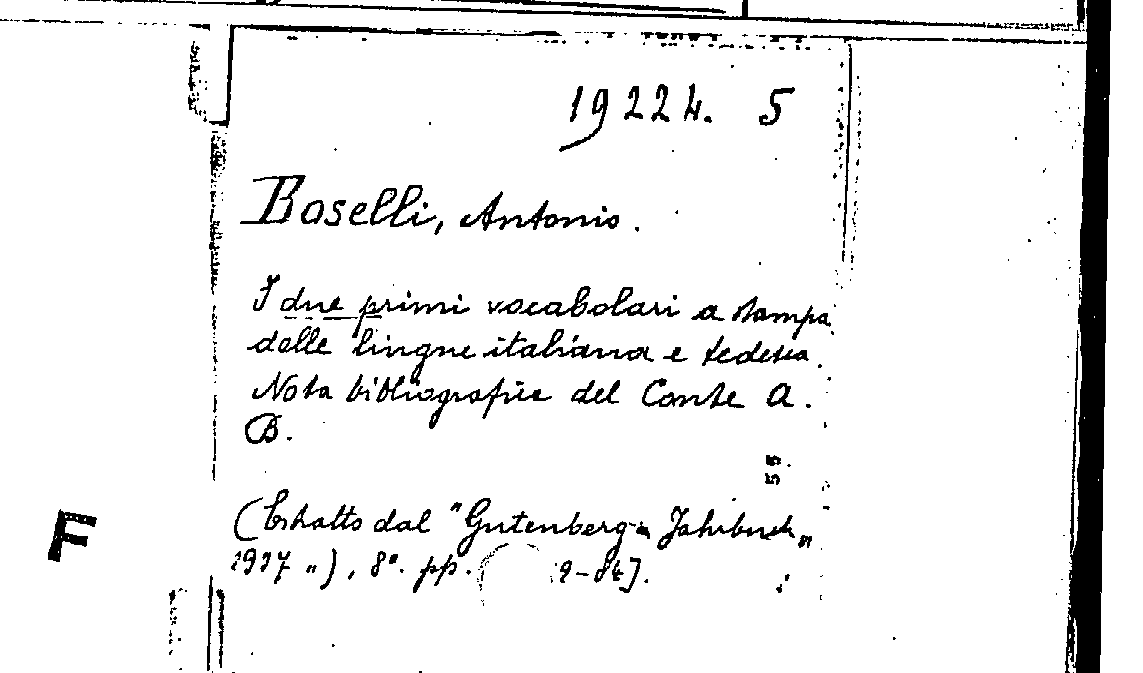 19224. 5
Boselli, Antonio.
I due primi vocabolari a stampa
delle lingue italiana e tedesca.
Nota bibliografie del Conte A.
B.
55
(Estratto dal "Gutenberg-Jahrbuch„
1937„), 8°. pp. 9-84].
F